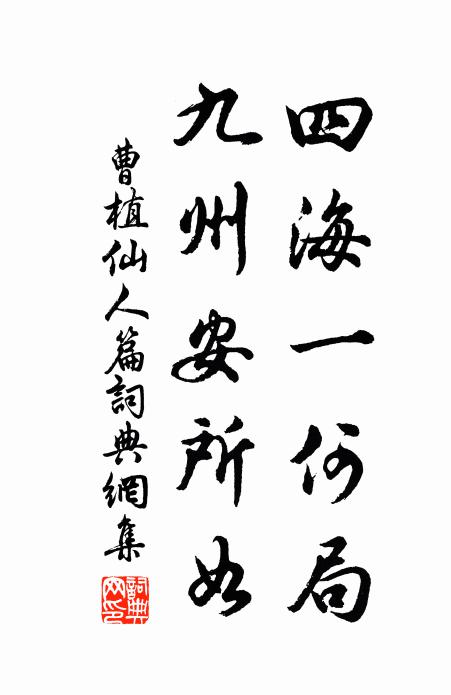 四海一何局
九州安所如
曹植仙人篇詞典網集
詞典網印